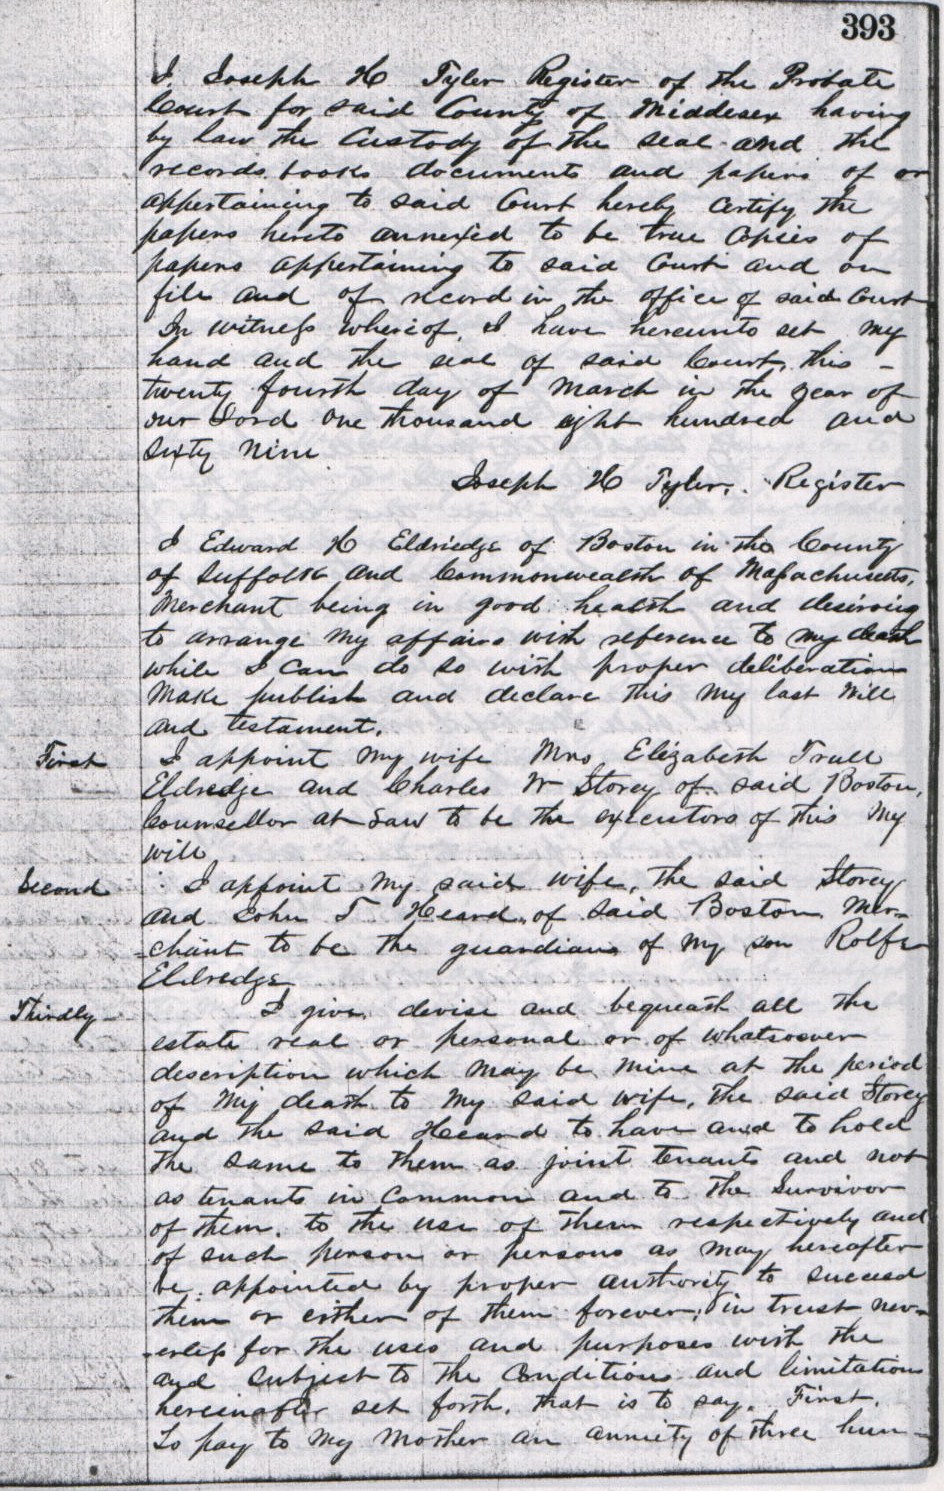 393
I, Joseph H Tyler Register of the Probate
Court for said County of Middlesex having
by law the Custody of the seal and the
records books documents and papers of or
appertaining to said Court hereby certify the
papers hereto annexed to be true copies of
papers appertaining to said Court and on
file and of record in the office of said Court
In witness whereof, I have hereunto set my
hand and the seal of said Court, this -
twenty fourth day of March in the year of
our Lord one thousand eight hundred and
sixty nine
Joseph H Tyler. Register
I Edward H Eldredge of Boston in the County
of Suffolk and Commonwealth of Massachusetts,
Merchant being in good health and desiring
to arrange my affairs with reference to my death
while I can do so with proper deliberation
make publish and declare this my last will
and testament.
First I appoint my wife Mrs Elizabeth Trull
Eldredge and Charles W Storey of said Boston,
Counsellor at Law to be the executors of this my
will
Second I appoint my said wife, the said Storey
and John T Heard of said Boston Mer-
-chant to be the guardians of my son Rolfe
Eldredge
Thirdly - I give, devise and bequeath all the
estate real or personal or of whatsoever
description which may be mine at the period
of my death to my said wife, the said Storey
and the said Heard to have and to hold
the same to them as joint tenants and not
as tenants in common and to the Survivor
of them. to the use of them respectively and
of such person or persons as may hereafter
be appointed by proper authority to succeed
them or either of them forever, in trust nev-
-erless for the uses and purposes with the
and subject to the conditions and limitations
hereinafter set forth, that is to say. First.
To pay to my mother an annuity of three hun-